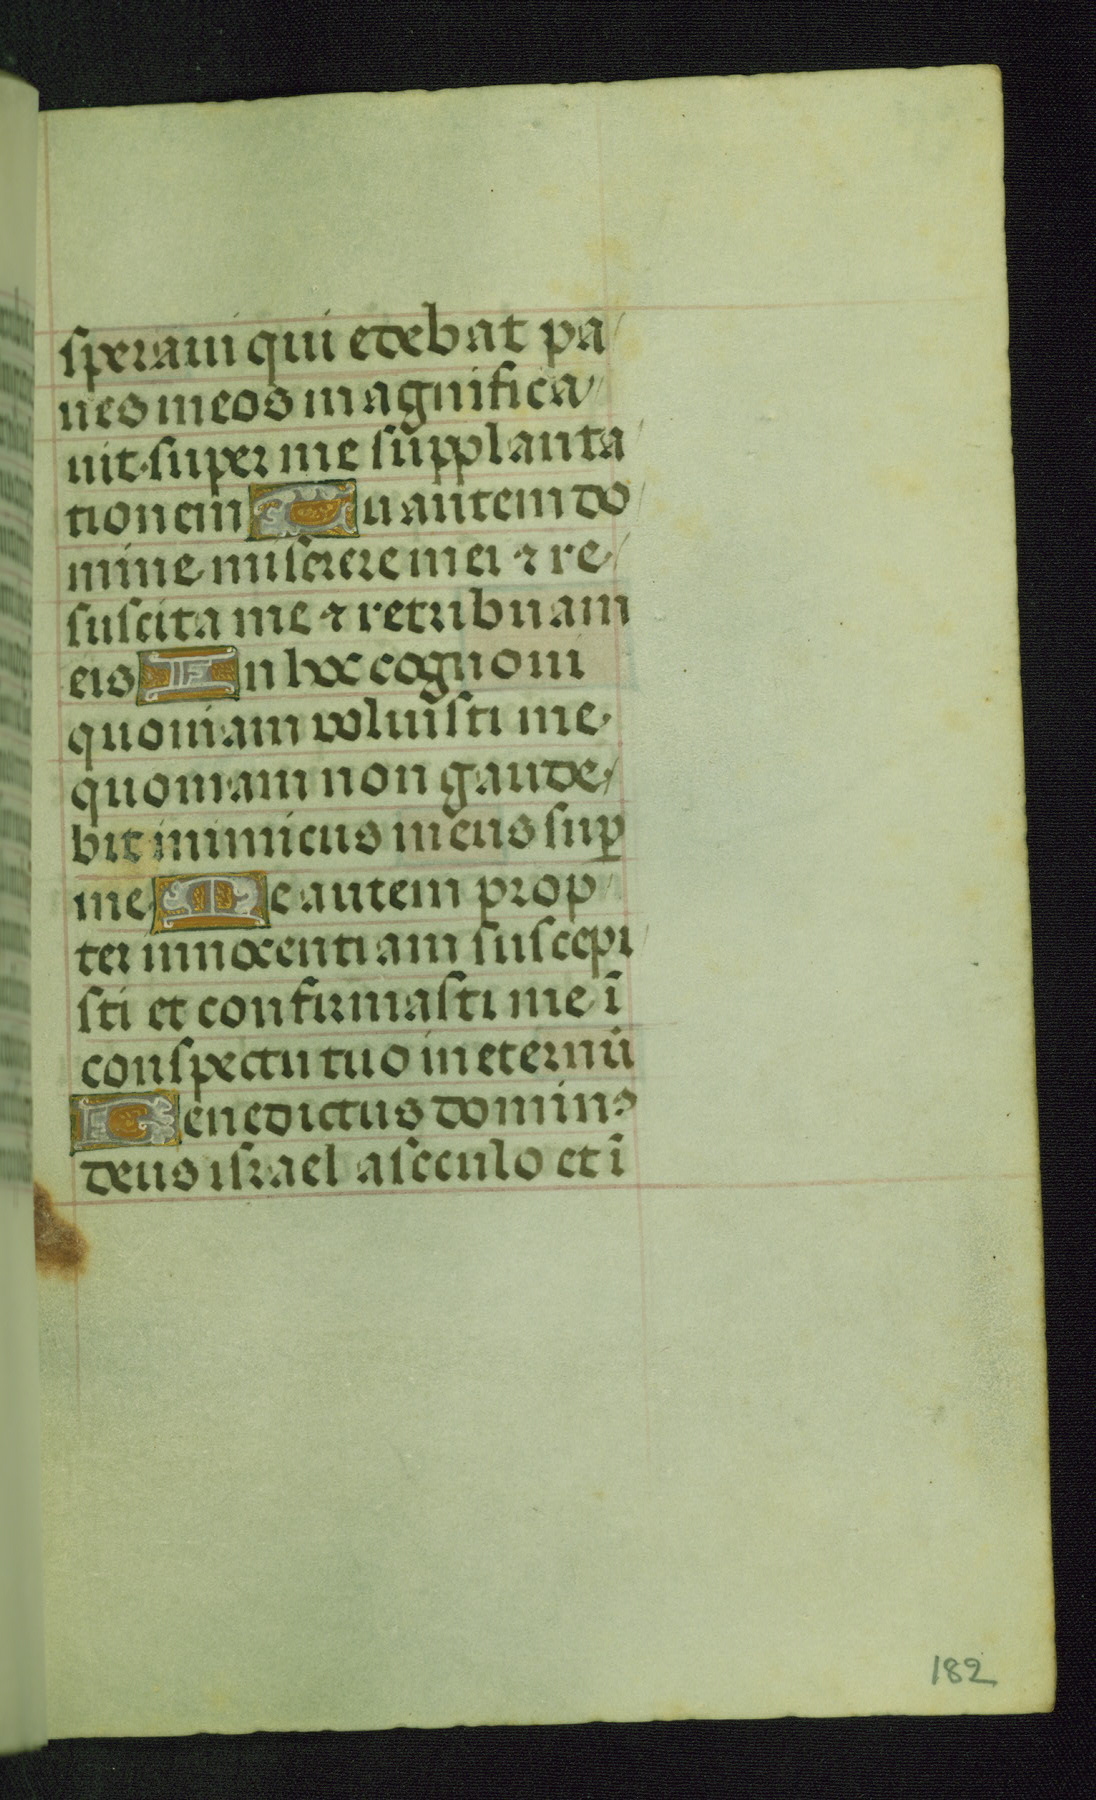 speraui qui edebat pa/
nes meos magnifica/
uit super me supplanta/
tionem Tu autem do/
mine miserere mei ⁊ re/
suscita me ⁊ retribuam
eis In hoc cognoui
quoniam voluisti me
quoniam non gaude/
bit inimicus meus sup̲
me Me autem prop/
ter innocentiam suscepi/
sti et confirmasti me ī
conspectu tuo in eternū
Benedictus dominꝰ
deus israel a seculo et ī
182